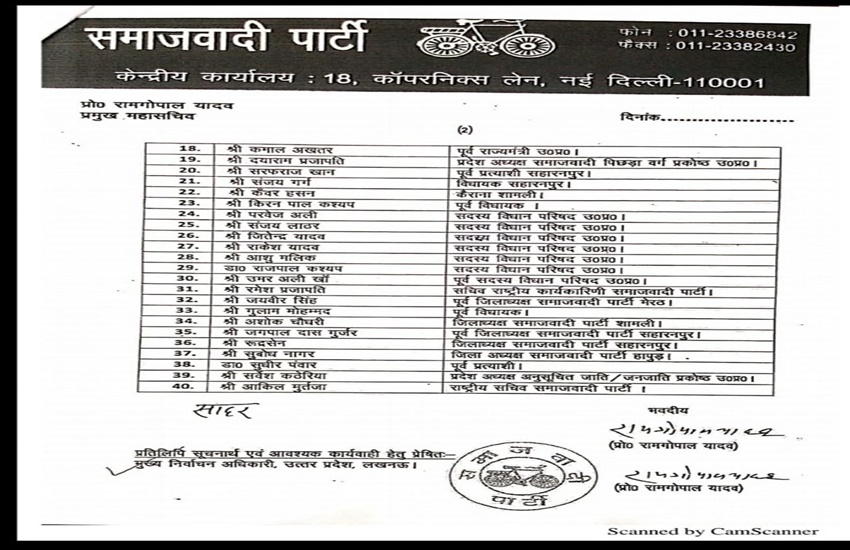 समाजवादी पार्टी
फोन : 011-23386842
फैक्स : 011-23382430
केन्द्रीय कार्यालय : 18, कॉपरनिक्स लेन, नई दिल्ली-110001
प्रो0 रामगोपाल यादव
प्रमुख महासचिव
दिनांक.....................
(2)
18. श्री कमाल अखतर पूर्व राज्यमंत्री उ0प्र0।
19. श्री दयाराम प्रजापति प्रदेश अध्यक्ष समाजवादी पिछड़ा वर्ग प्रकोष्ठ उ0प्र0।
20. श्री सरफराज खान पूर्व प्रत्याशी सहारनपुर।
21. श्री संजय गर्ग विधायक सहारनपुर।
22. श्री कँवर हसन कैराना शामली।
23. श्री किरन पाल कश्यप पूर्व विधायक ।
24. श्री परवेज अली सदस्य विधान परिषद उ0प्र0।
25. श्री संजय लाठर सदस्य विधान परिषद उ0प्र0।
26. श्री जितेन्द्र यादव सदस्य विधान परिषद उ0प्र0।
27. श्री राकेश यादव सदस्य विधान परिषद उ0प्र0।
28. श्री आशु मलिक सदस्य विधान परिषद उ0प्र0।
29. डा0 राजपाल कश्यप सदस्य विधान परिषद उ0प्र0।
30. श्री उमर अली खाँ पूर्व सदस्य विधान परिषद उ0प्र0।
31. श्री रमेश प्रजापति सचिव राष्ट्रीय कार्यकारिणी समाजवादी पार्टी।
32. श्री जयवीर सिंह पूर्व जिलाध्यक्ष समाजवादी पार्टी मेरठ।
33. श्री गुलाम मोहम्मद पूर्व विधायक।
34. श्री अशोक चौधरी जिलाध्यक्ष समाजवादी पार्टी शामली।
35. श्री जगपाल दास गुर्जर पूर्व जिलाध्यक्ष समाजवादी पार्टी सहारनपुर।
36. श्री रूद्रसेन जिलाध्यक्ष समाजवादी पार्टी सहारनपुर।
37. श्री सुबोध नागर जिला अध्यक्ष समाजवादी पार्टी हापुड़।
38. डा0 सुधीर पंवार पूर्व प्रत्याशी।
39. श्री सर्वेश कठेरिया प्रदेश अध्यक्ष अनुसूचित जाति/जनजाति प्रकोष्ठ उ0प्र0।
40. श्री आकिल मुर्तजा राष्ट्रीय सचिव समाजवादी पार्टी ।
सादर
भवदीय
रामगोपाल यादव
(प्रो0 रामगोपाल यादव)
प्रतिलिपि सूचनार्थ एवं आवश्यक कार्यवाही हेतु प्रेषितः—
मुख्य निर्वाचन अधिकारी, उत्तर प्रदेश, लखनऊ।
समाजवादी
पार्टी
रामगोपाल यादव
(प्रो0 रामगोपाल यादव)
Scanned by CamScanner